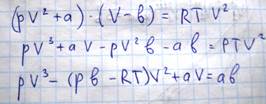 (pV² + a) · (V - в) = RTV²
pV³ + aV - pV²в - aв = PTV²
pV³ - (pв - RT)V² + aV = aв